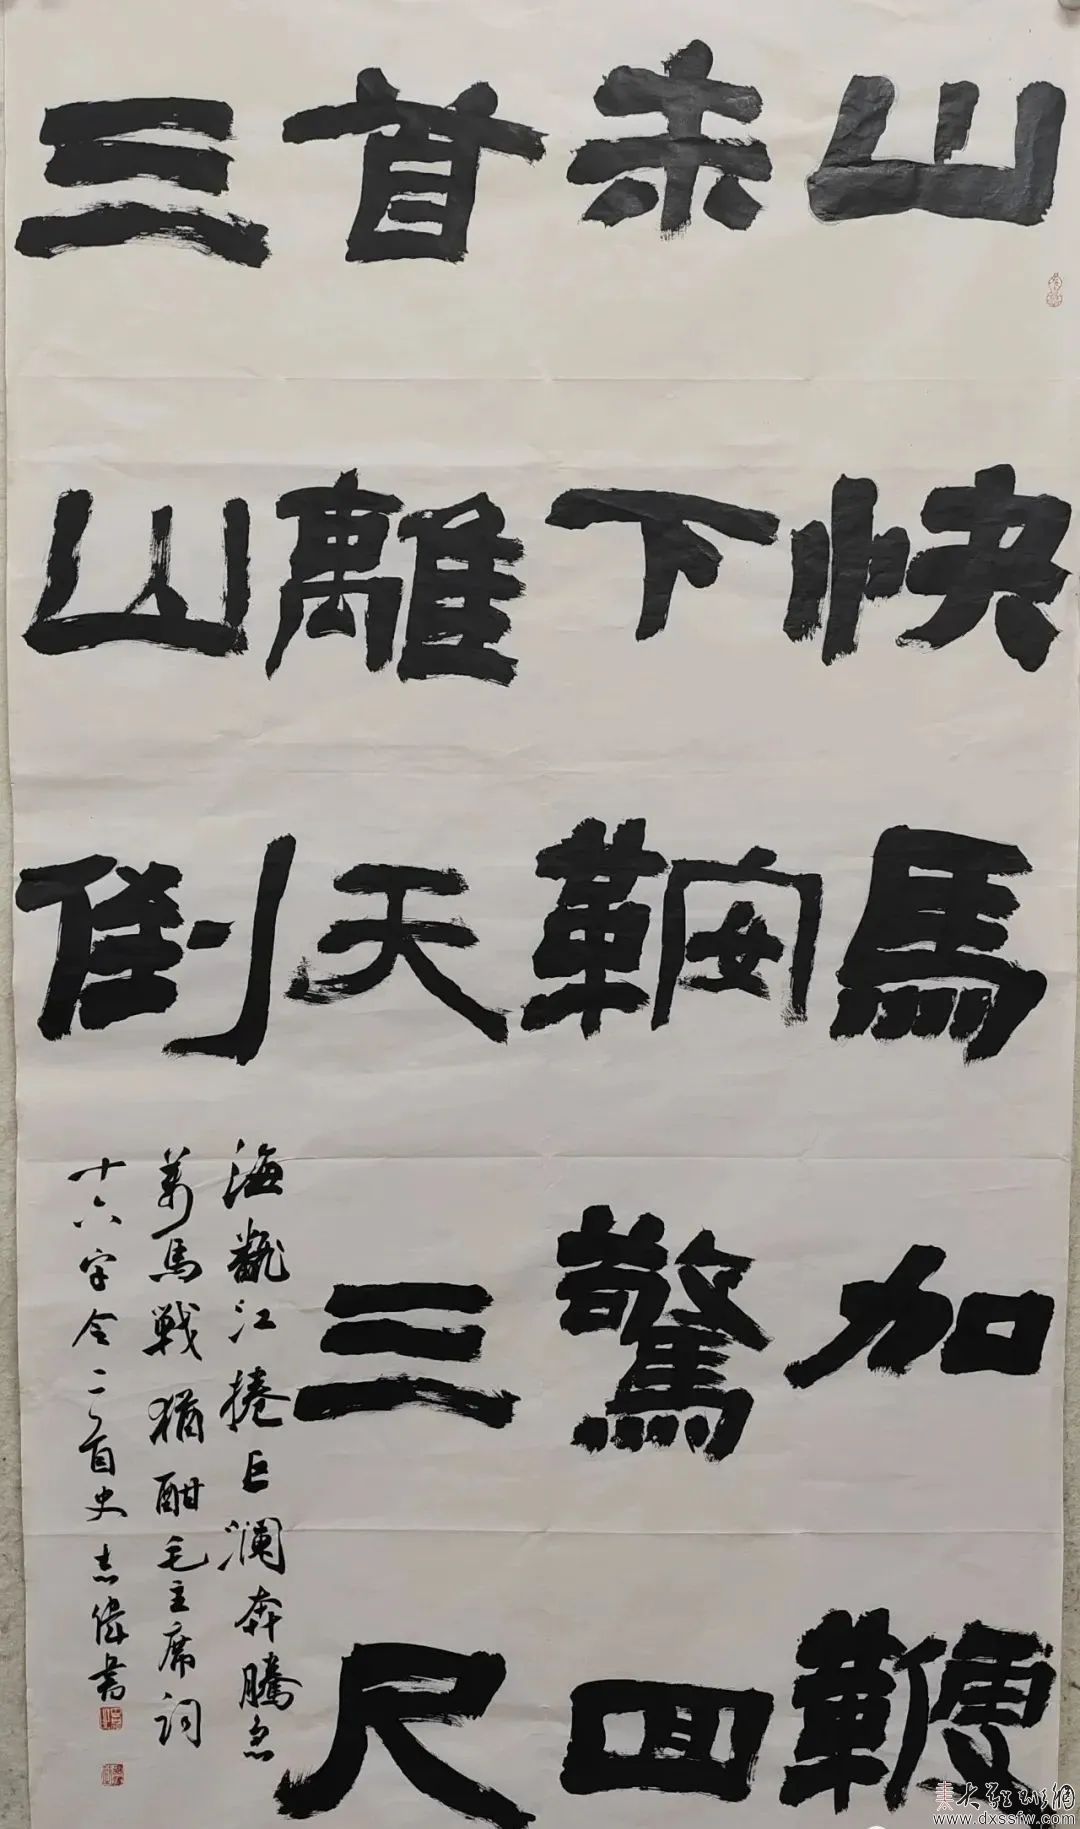 山快馬加鞭
未下鞍驚回
首離天三尺
三山倒
海飜江捲巨瀾奔騰急
萬馬戰猶酣毛主席詞
十六字令二首史志偉書
www.dxssfw.com